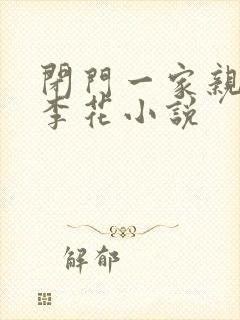 閉門一家親
李花小說
解郁